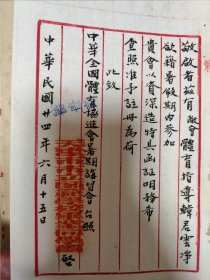 敬啟者兹有敝會體育指導韓君雲濤
欲藉暑假期内參加
貴會以資深造特具函証明務希
查照准予註冊為荷
此致
中華全國體育協進會暑期講習會台照
啓
中華民國廿四年六月十五日